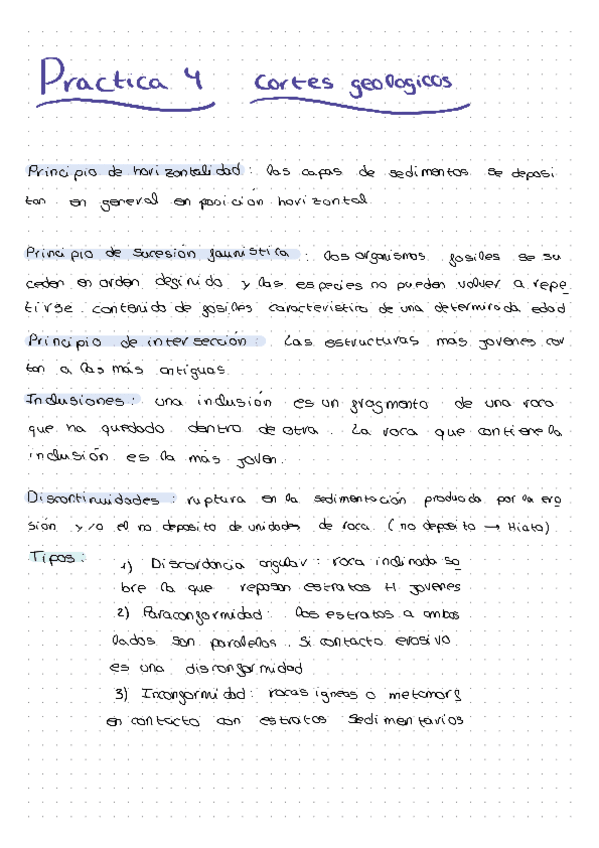 Practica 4 cortes geologicos
Principio de horizontalidad : las capas de sedimentos se deposi
tan en general en posición horizontal
Principio de sucesión faunística : los organismos fosiles se su
ceden en orden definido y las especies no pueden volver a repe
tirse . contenido de fosiles caracteristico de una determinada edad
Principio de intersección : Las estructuras más jovenes cor
tan a las más antiguas
Inclusiones : una inclusión es un fragmento de una roca
que ha quedado dentro de otra . La roca que contiene la
inclusión es la más joven.
Discontinuidades : ruptura en la sedimentación producida por la ero
sión y/o el no deposito de unidades de roca ( no deposito → Hiato)
Tipos :
1) Discordancia angular : roca inclinada so
bre la que reposan estratos H jovenes
2) Paraconformidad : los estratos a ambos
lados son paralelos . Si contacto erosivo
es una disconformidad
3) Inconformidad : rocas igneas o metamorf
en contacto con estratos sedimentarios